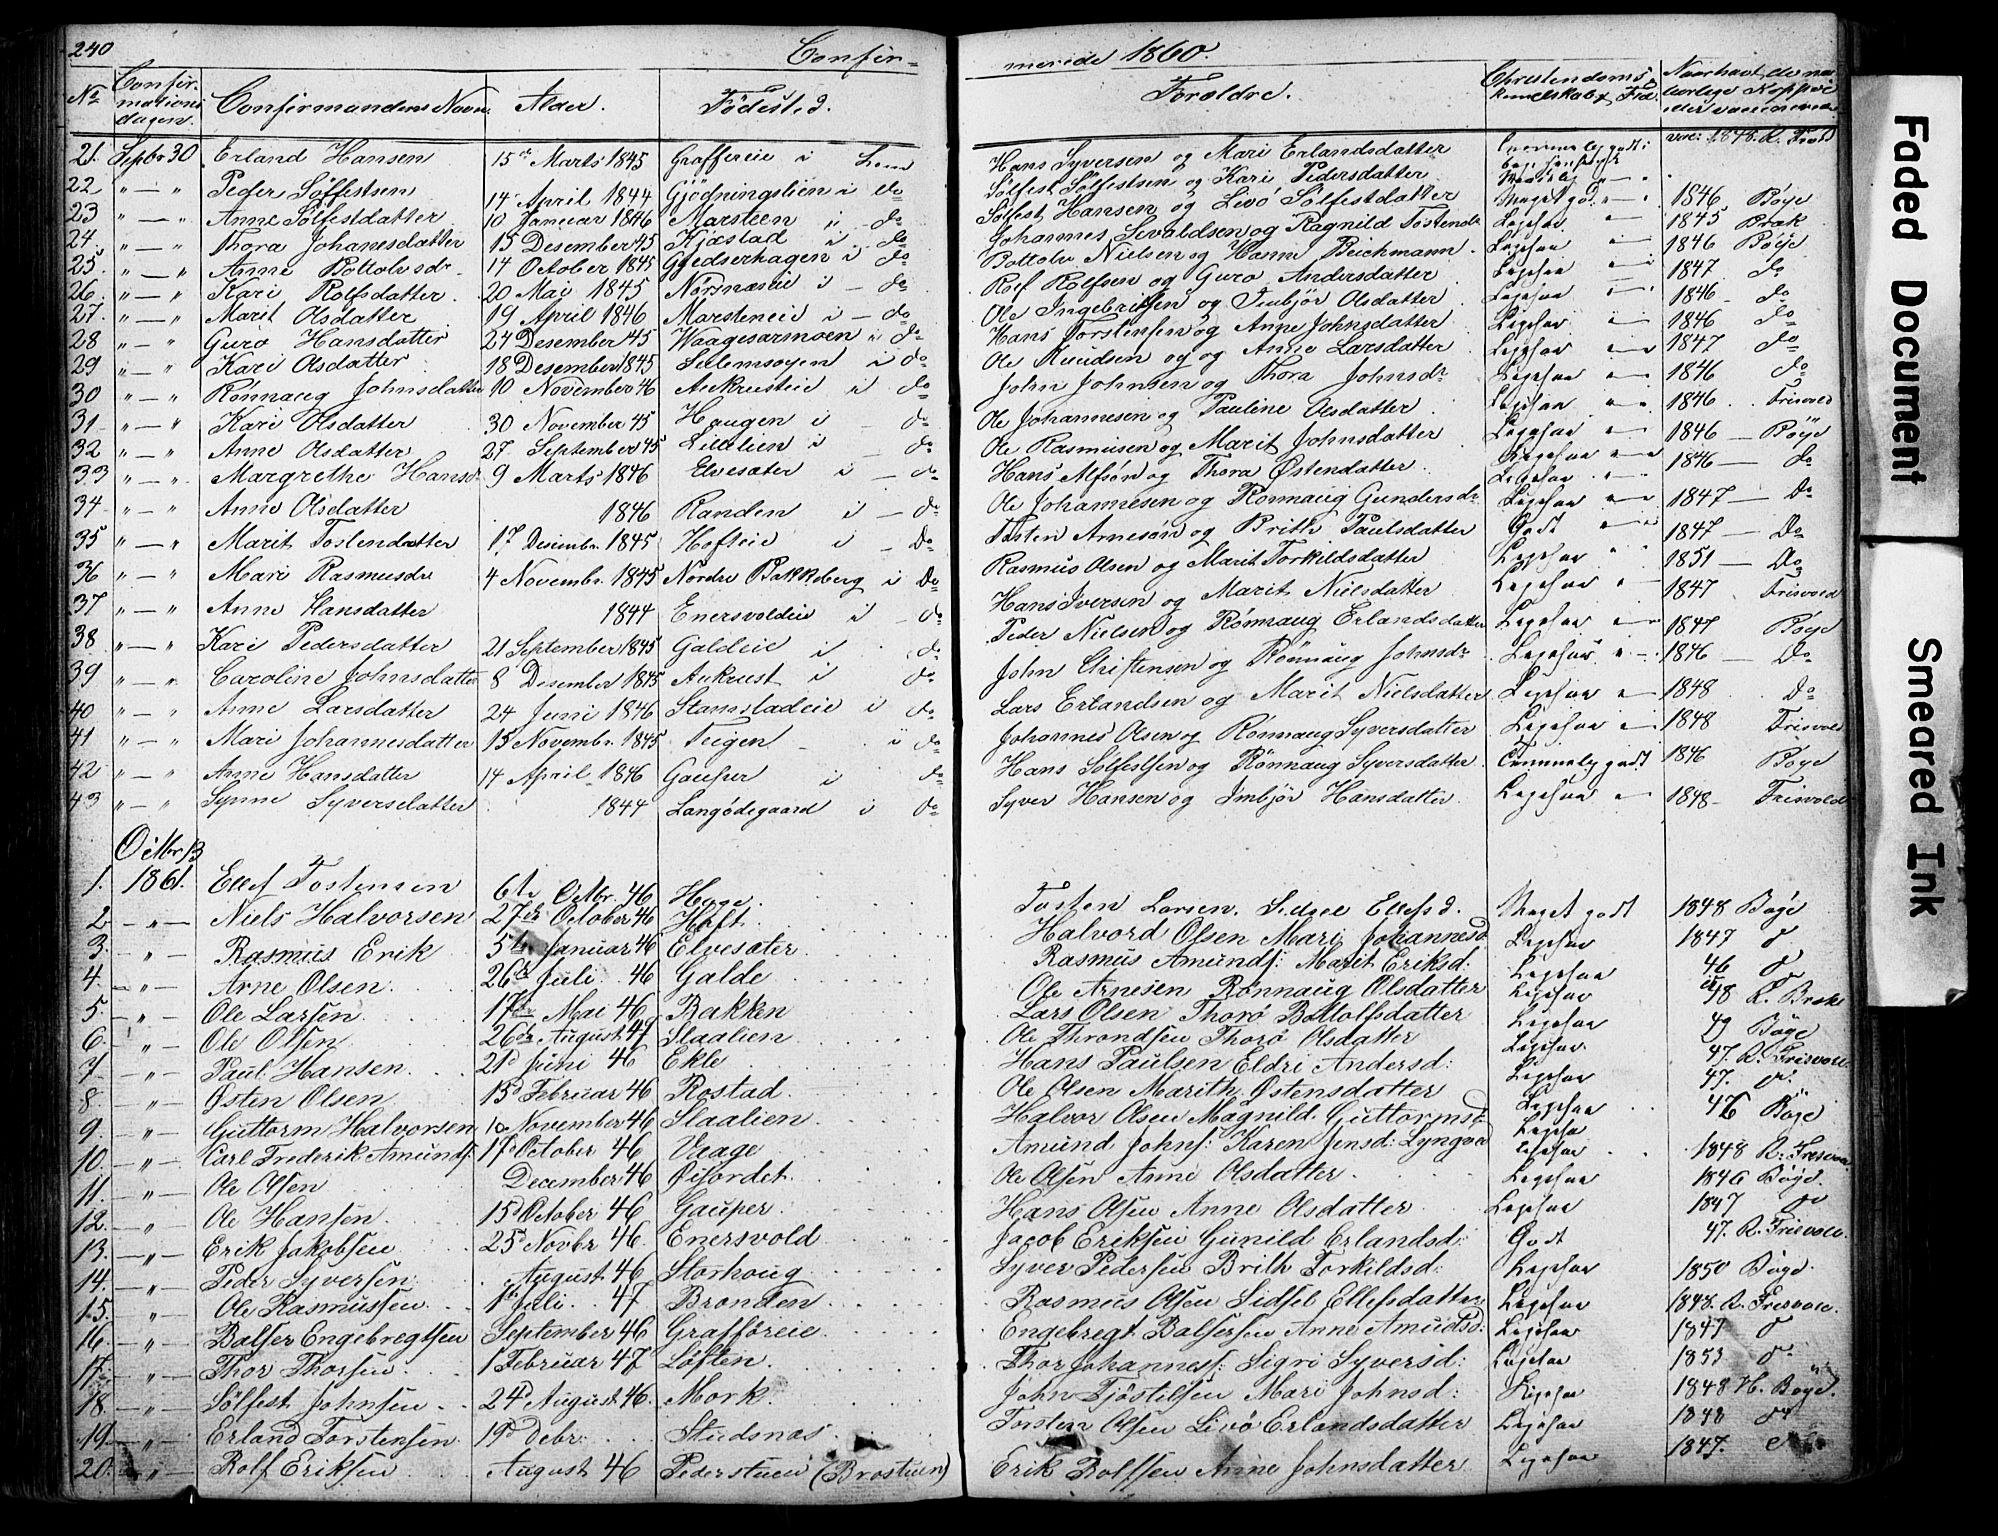 240 Confir- merede 1860.
No Confirmations dagen. Confirmandens Navn Alder. Födested. Foreldre. Christendoms kundskab & Flid Naar havt de naturlige Kopper eller vaccineret
21. Septbr 30 Erland Hansen 15de Marts 1845 Graffereie i Lom Hans Syversen og Mari Erlandsdatter vac: 1848. R. Frisvold
22 " — " Peder Sølfestsen 14 April 1844 Gjödningslien i do Sølfest Sølfestsen og Kari Pedersdatter
23 " — " Anne Sølfestdatter 10 Januar 1846 Marsteen i do Sølfest Hansen og Livø Sølfestdatter Meget godt 1846 Bøye
24 " — " Thora Johanesdatter 15 Desember 45 Kjæstad i do Johannes Sevaldsen og Ragnild Tostensdr Ligesaa 1845 Brak
25 " — " Anne Bottolvsdr 14 October 1845 Gjedserhagen i do Bottolv Nielsen og Hanne Beichmann Ligesaa 1846 Bøye
26 " — " Kari Rolfsdatter 20 Mai 1845 Nörnæseie i do Rolf Rolfsen og Guro Andersdatter Ligesaa 1847 do
27. " — " Marit Olsdatter 19 April 1846 Marsteneie i do Ole Ingebritsen og Imbjør Olsdatter Ligesaa 1846 do
28 " — " Guro Hansdatter 24 Desember 45 Waagesarmoen i do Hans Torstensen og Anne Johnsdatter Ligesaa 1846 do
29 " — " Kari Olsdatter 18 Desember 1845 Sulemsøyen i do Ole Knudsen og og Anne Larsdatter Ligesaa 1847 do
30 " — " Rönnaug Johnsdatter 10 November 46 Aukrusteie i do John Johnsen og Thora Johnsdr Ligesaa 1846 do
31 " — " Kari Olsdatter 30 November 45 Haugen i do Ole Johannesen og Pauline Olsdatter Ligesaa 1846 Frisvold
32 " — " Anne Olsdatter 27 September 45 Lillelien i do Ole Rasmusen og Marit Johnsdatter Ligesaa 1846 — Bøye
33 " — " Margrethe Hansdr 9 Marts 1846 Elvesæter i do Hans Alfsøn og Thora Østendatter Ligesaa 1846 — do
34 " — " Anne Olsdatter 1846 Randen i — do Ole Johannesen og Rönnaug Gundersdr Ligesaa 1847 — Do
35 " — " Marit Tostendatter 17 Desembr 1845 Hofteie i Do Tosten Arnesøn og Brith Paulsdatter Godt 1847 — Do
36 " — " Mari Rasmusdr 4 Novembr. 1845 Nordre Bakkeberg i Do Rasmus Olsen og Marit Torkildsdatter Ligesaa 1851 — Do
37 " — " Anne Hansdatter 1844 Enersvoldeie i do Hans Iversen og Marit Nielsdatter Ligesaa 1847 Frisvold
38 " — " Kari Pedersdatter 21 September 1845 Galdeie i do Peder Nielsen og Rønnaug Erlandsdatter Ligesaa 1847 Bøye
39 " — " Caroline Johnsdatter 8 Desember 1845 Aukrust i do John Christensen og Rønnaug Johnsdr Ligesaa 1846 — Do
40 " — " Anne Larsdatter 24 Juni 1846 Stamstadeie i do Lars Erlandsen og Marit Nielsdatter Ligesaa 1848 Do
41 " — " Mari Johannesdatter 15 Novembr. 1845 Teigen i do Johannes Olsen og Rønnaug Syversdatter Ligesaa 1848 Frisvold
42 " — " Anne Hansdatter 14 April 1846 Gauper i do Hans Sølfestsen og Rønnaug Syversdatter Temmelig godt 1846 Bøye
43 " — " Synne Syversdatter 1844 Langødegaard i do Syver Hansen og Imbjør Hansdatter Ligesaa 1848 Frisvold
Octbr 13
1. 1861. Ellef Tostensen 6te Octbr. 46 Hage Tosten Larsen. Sidsel Ellefsd. Meget godt 1848 Bøge
2 — " — Niels Halvorsen 27de October 46 Hoft Halvord Olsen Mari Johannesd Ligesaa 1847 do
3. — " — Rasmus Erik 5te Januar 46 Elvesæter Rasmus Amundsf: Marit Eriksd: Ligesaa 46 do
4. — " — Arne Olsen 26de Juli 46 Galde Ole Arnesen Rønnaug Olsdatter Ligesaa 48 L. Brake
5. — " — Ole Larsen 17de Mai 46 Bakken Lars Olsen Thorø Bottolfsdatter Ligesaa 49 Bøge
6. — " — Ole Olsen 26de August 47 Slaalien Ole Throndsen Thorø Olsdatter Ligesaa 47. R. Frisvold
7 — " — Paul Hansen 21d Juni 46 Ekle Hans Paulsen Eldri Andersd: Ligesaa 47. do
8 — " — Østen Olsen 15d Februar 46 Rostad Ole Olsen Marith Østensdatter Ligesaa 46 Bøge
9. — " — Guttorm Halvorsen 10 November 46 Slaalien Halvor Olsen Magnild Guttormsd Ligesaa
10. — " — Carl Frederik Amunds 17d October 46 Vaage Amund Johnsf: Karen Jensd: Lyngved Ligesaa 1848 R. Fresvold
11. — " — Ole Olsen December 46 Øifordet Ole Olsen Anne Olsdatter Ligesaa 1846 Bøge
12. — " — Ole Hansen 15d October 46 Gauper Hans Olsen Anne Olsdatter Ligesaa 1847 do
13. — " — Erik Jakobsen 25d Novbr 46 Enersvold Jacob Eriksen Gunild Erlandsd: Godt 47. R. Frisvold
14. — " — Peder Syversen August 46 Storhoug Syver Pedersen Brith Torkildsd: Ligesaa 1850 Bøge
15. — " — Ole Rasmussen 1te Juli 47 Brenden Rasmus Olsen Sidsel Ellefsdatter Ligesaa 1848. R. Fresvold
16. — " — Balser Engebregtsen September 46 Grafføreie Engebregt Balsersen Anne Amudsd: Ligesaa 1847 do
17. — " — Thor Thorsen 1 Februar 47 Løften Thor Johannesf: Sigrø Syversd: Ligesaa 1853 do
18. — " — Sølfest Johnsen 24d August 46. Mork John Tjøstelsen Mari Johnsd: Ligesaa 1848 H. Bøge
19. — " — Erland Torstensen 19d Debr: Studsnæs Torsten Olsen Livø Erlandsdatter Ligesaa 1848 do
20. — " — Rolf Eriksen August 46 Pederstuen (Brostuen) Erik Rolfsen Anne Johnsdatter Ligesaa 1847.
Faded Document
Smeared Ink